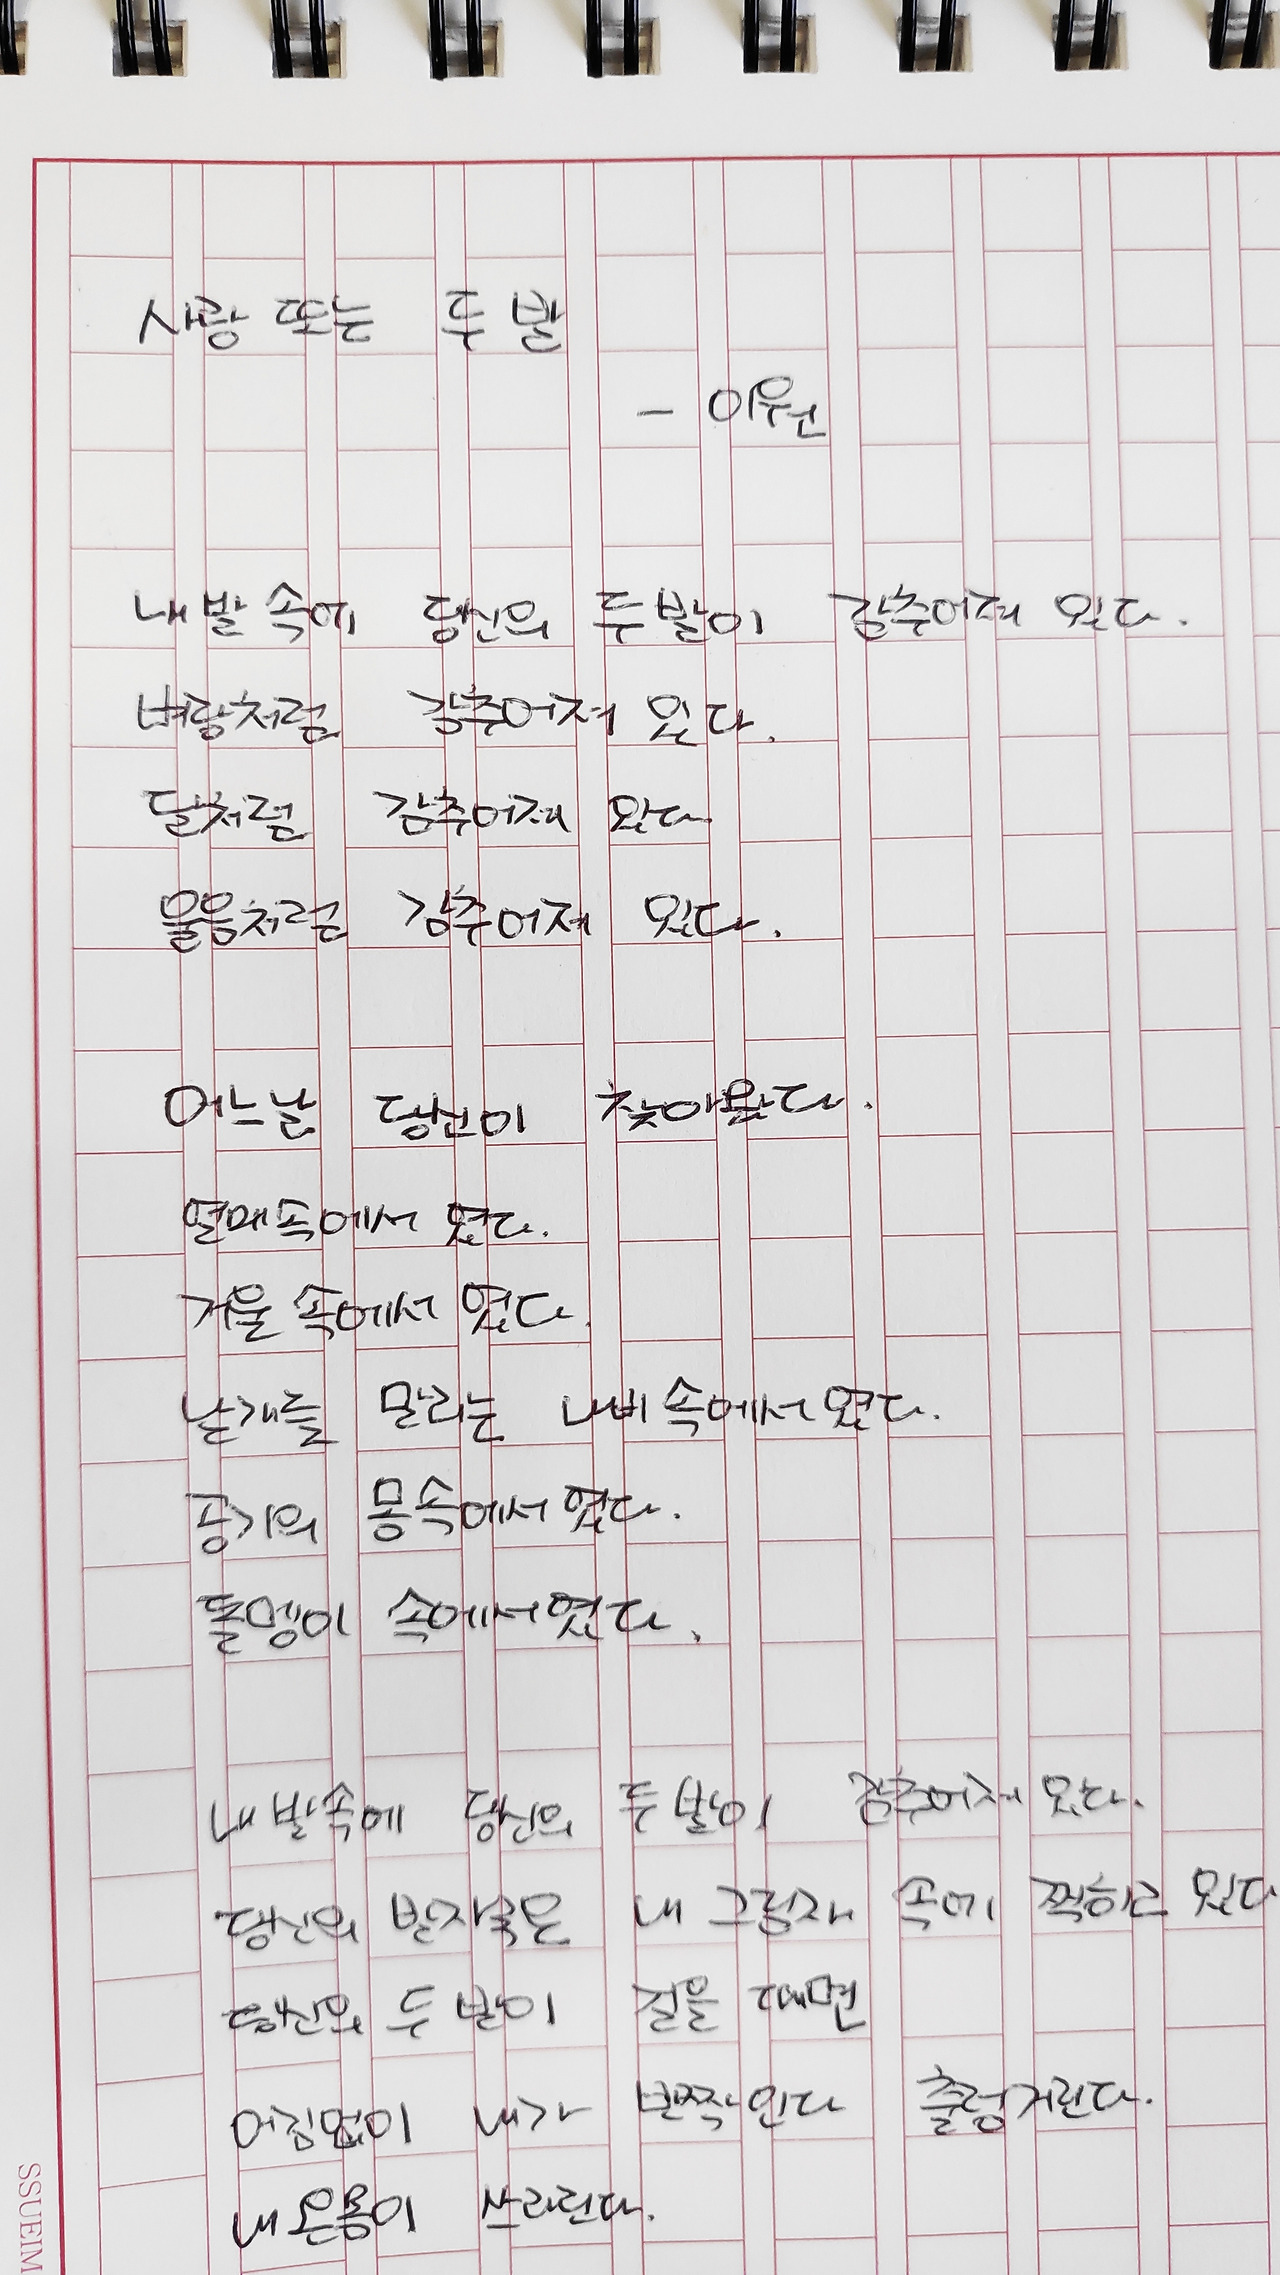 사랑 또는 두 발
- 이원
내 발 속에 당신의 두 발이 감추어져 있다.
벼랑처럼 감추어져 있다.
달처럼 감추어져 있다
울음처럼 감추어져 있다.
어느날 당신이 찾아왔다.
열매속에서 였다.
거울 속에서 였다.
날개를 말리는 나비 속에서 였다.
공기의 몸속에서 였다.
돌멩이 속에서 였다.
내 발 속에 당신의 두 발이 감추어져 있다.
당신의 발자국은 내 그림자 속에 찍히고 있다
당신의 두 발이 걸을 때면
어김없이 내가 반짝인다 출렁거린다.
내 온몸이 쓰라린다.
SSUEIM